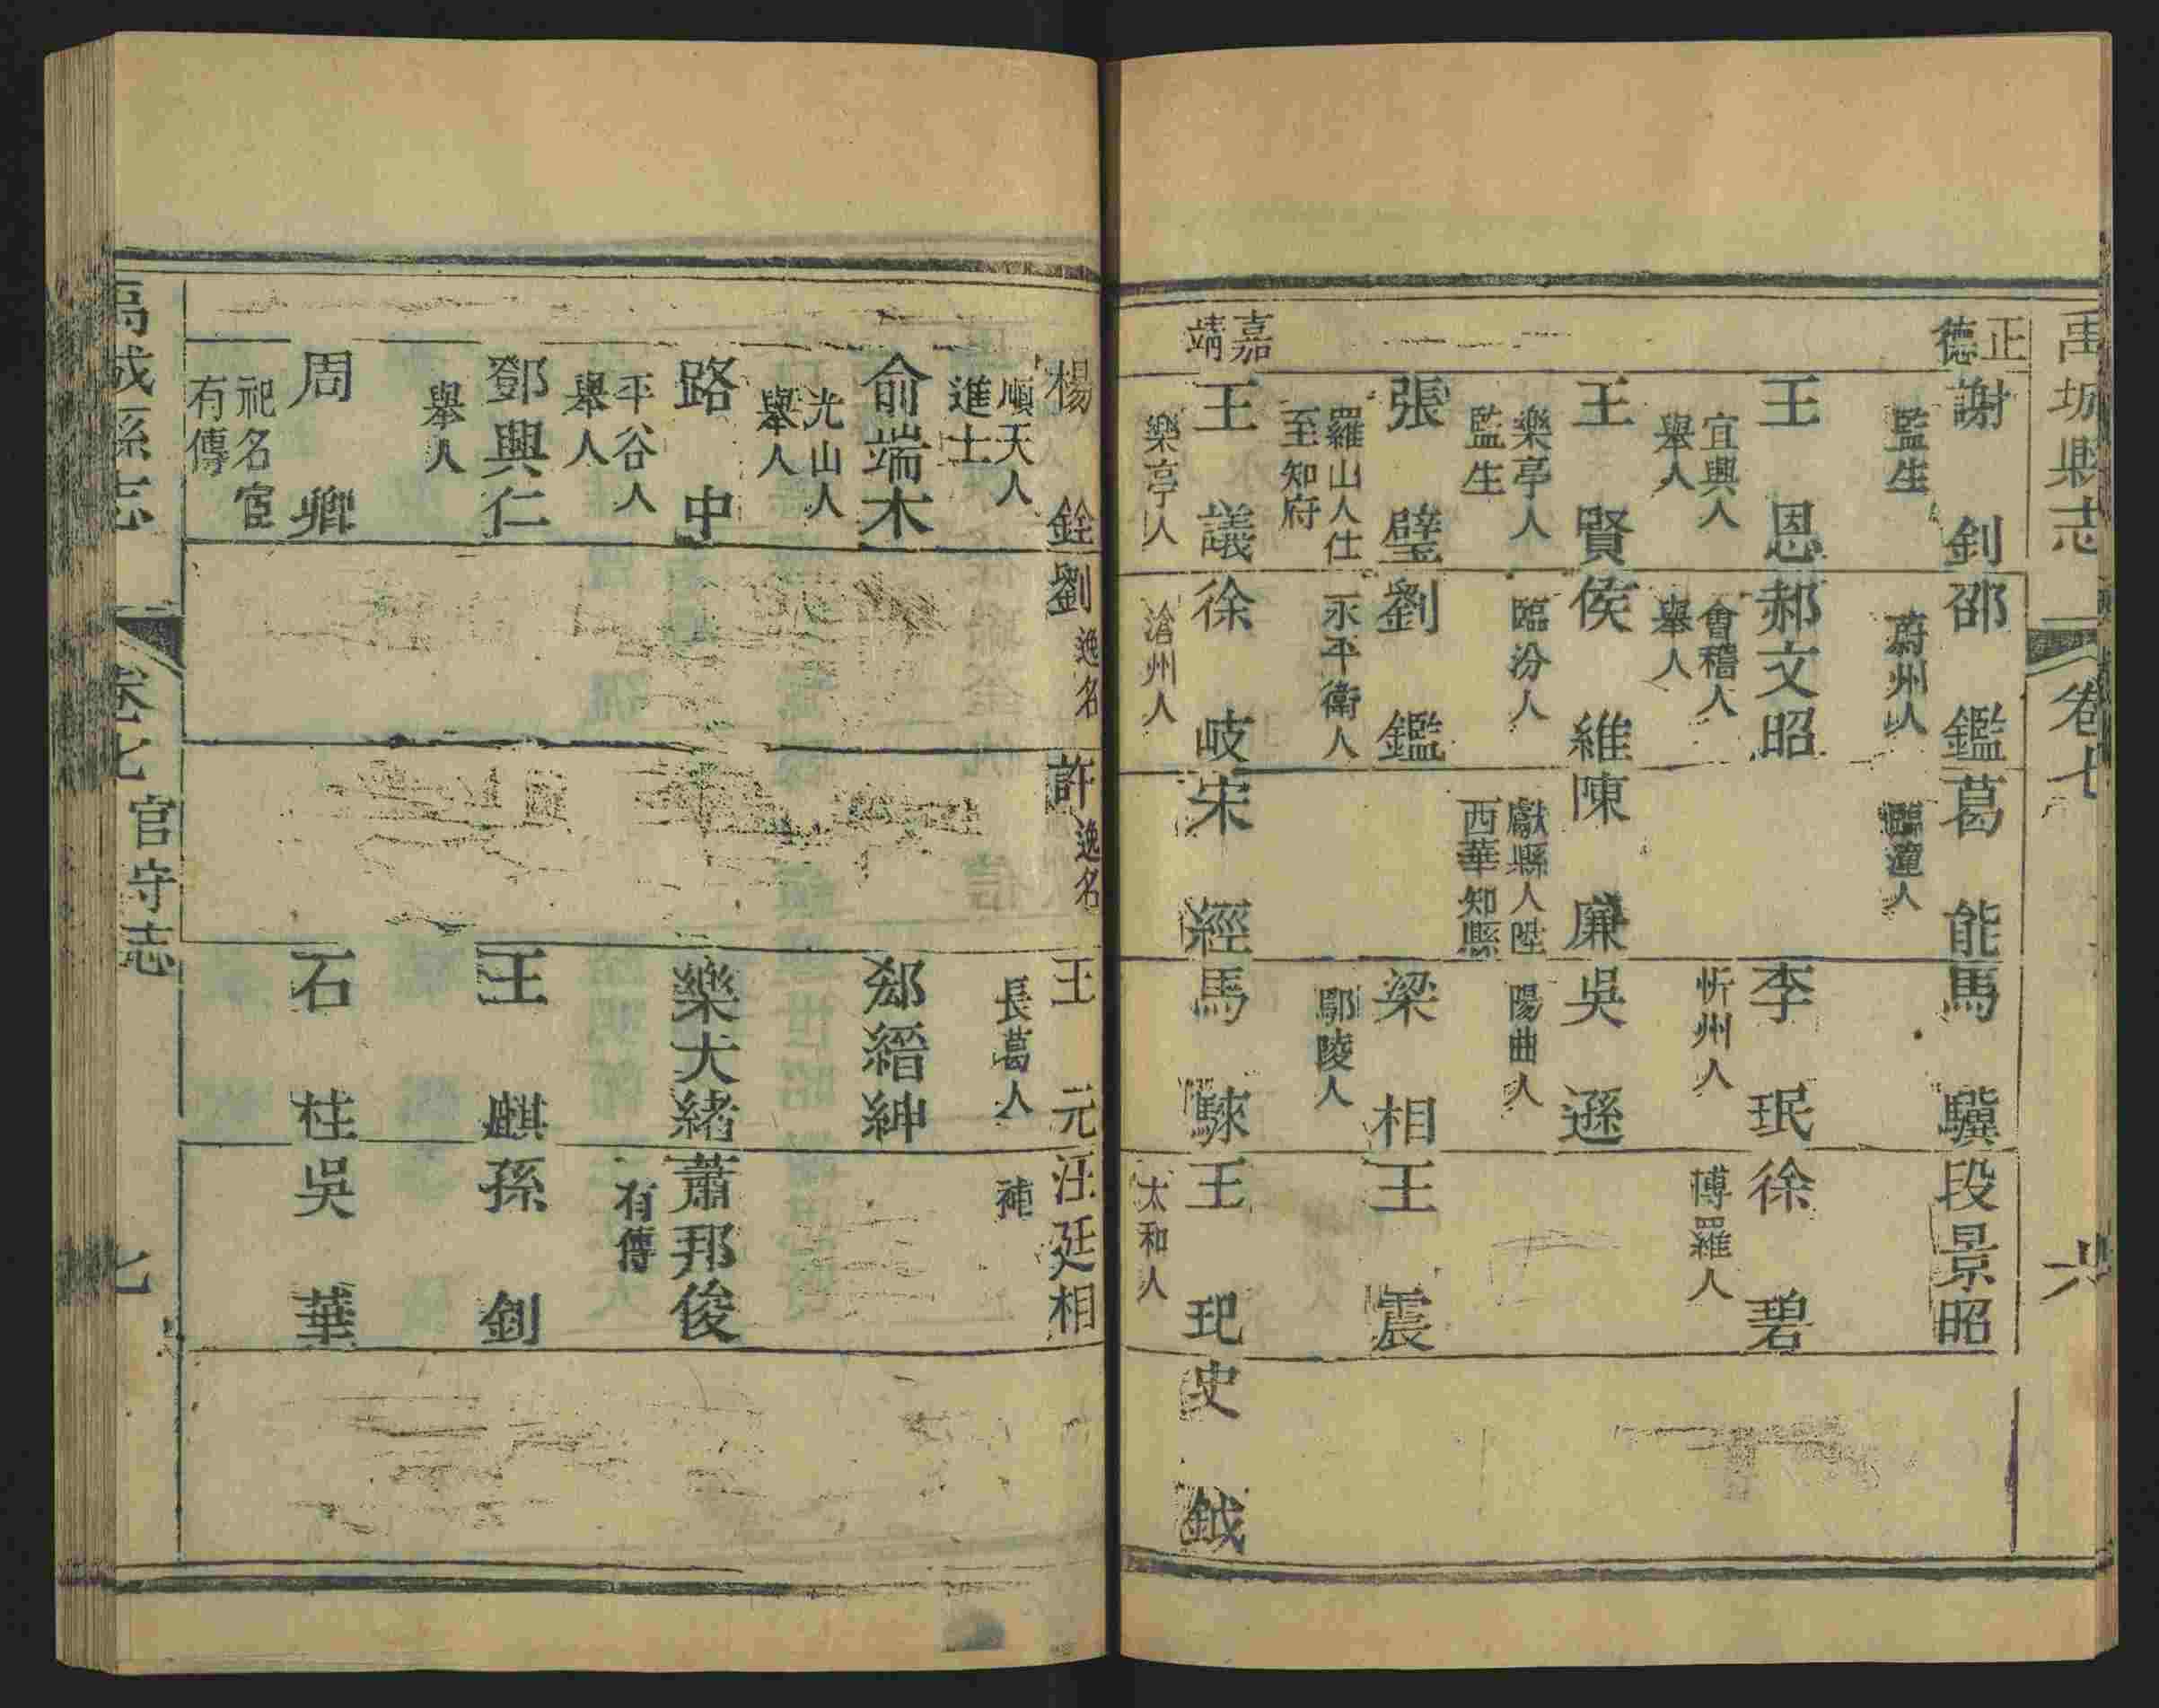 禹城縣志
卷七
六
正德
謝釗
監生
王恩
宜興人
舉人
王賢
樂亭人
監生
張璧
羅山人仕
至知府
嘉靖
王議
樂亭人
邵鑑
蔚州人
郝文昭
會稽人
舉人
侯維
臨汾人
劉鑑
永平衛人
徐岐
滄州人
葛能
臨潼人
陳廉
獻縣人陞
西華知縣
宋經
馬驥
李珉
忻州人
吳遜
陽曲人
梁相
鄢陵人
馬騋
段景昭
徐碧
博羅人
王震
王玘
太和人
史鉞
楊銓
順天人
進士
俞端木
光山人
舉人
路中
平谷人
舉人
鄧興仁
舉人
周卿
祀名宦
有傳
劉逸名
許逸名
王元
長葛人
郄縉紳
樂大緒
王麒
石柱
汪廷相
蕭邦俊
有傳
孫釗
吳華
禹城縣志
卷七
官守志
七